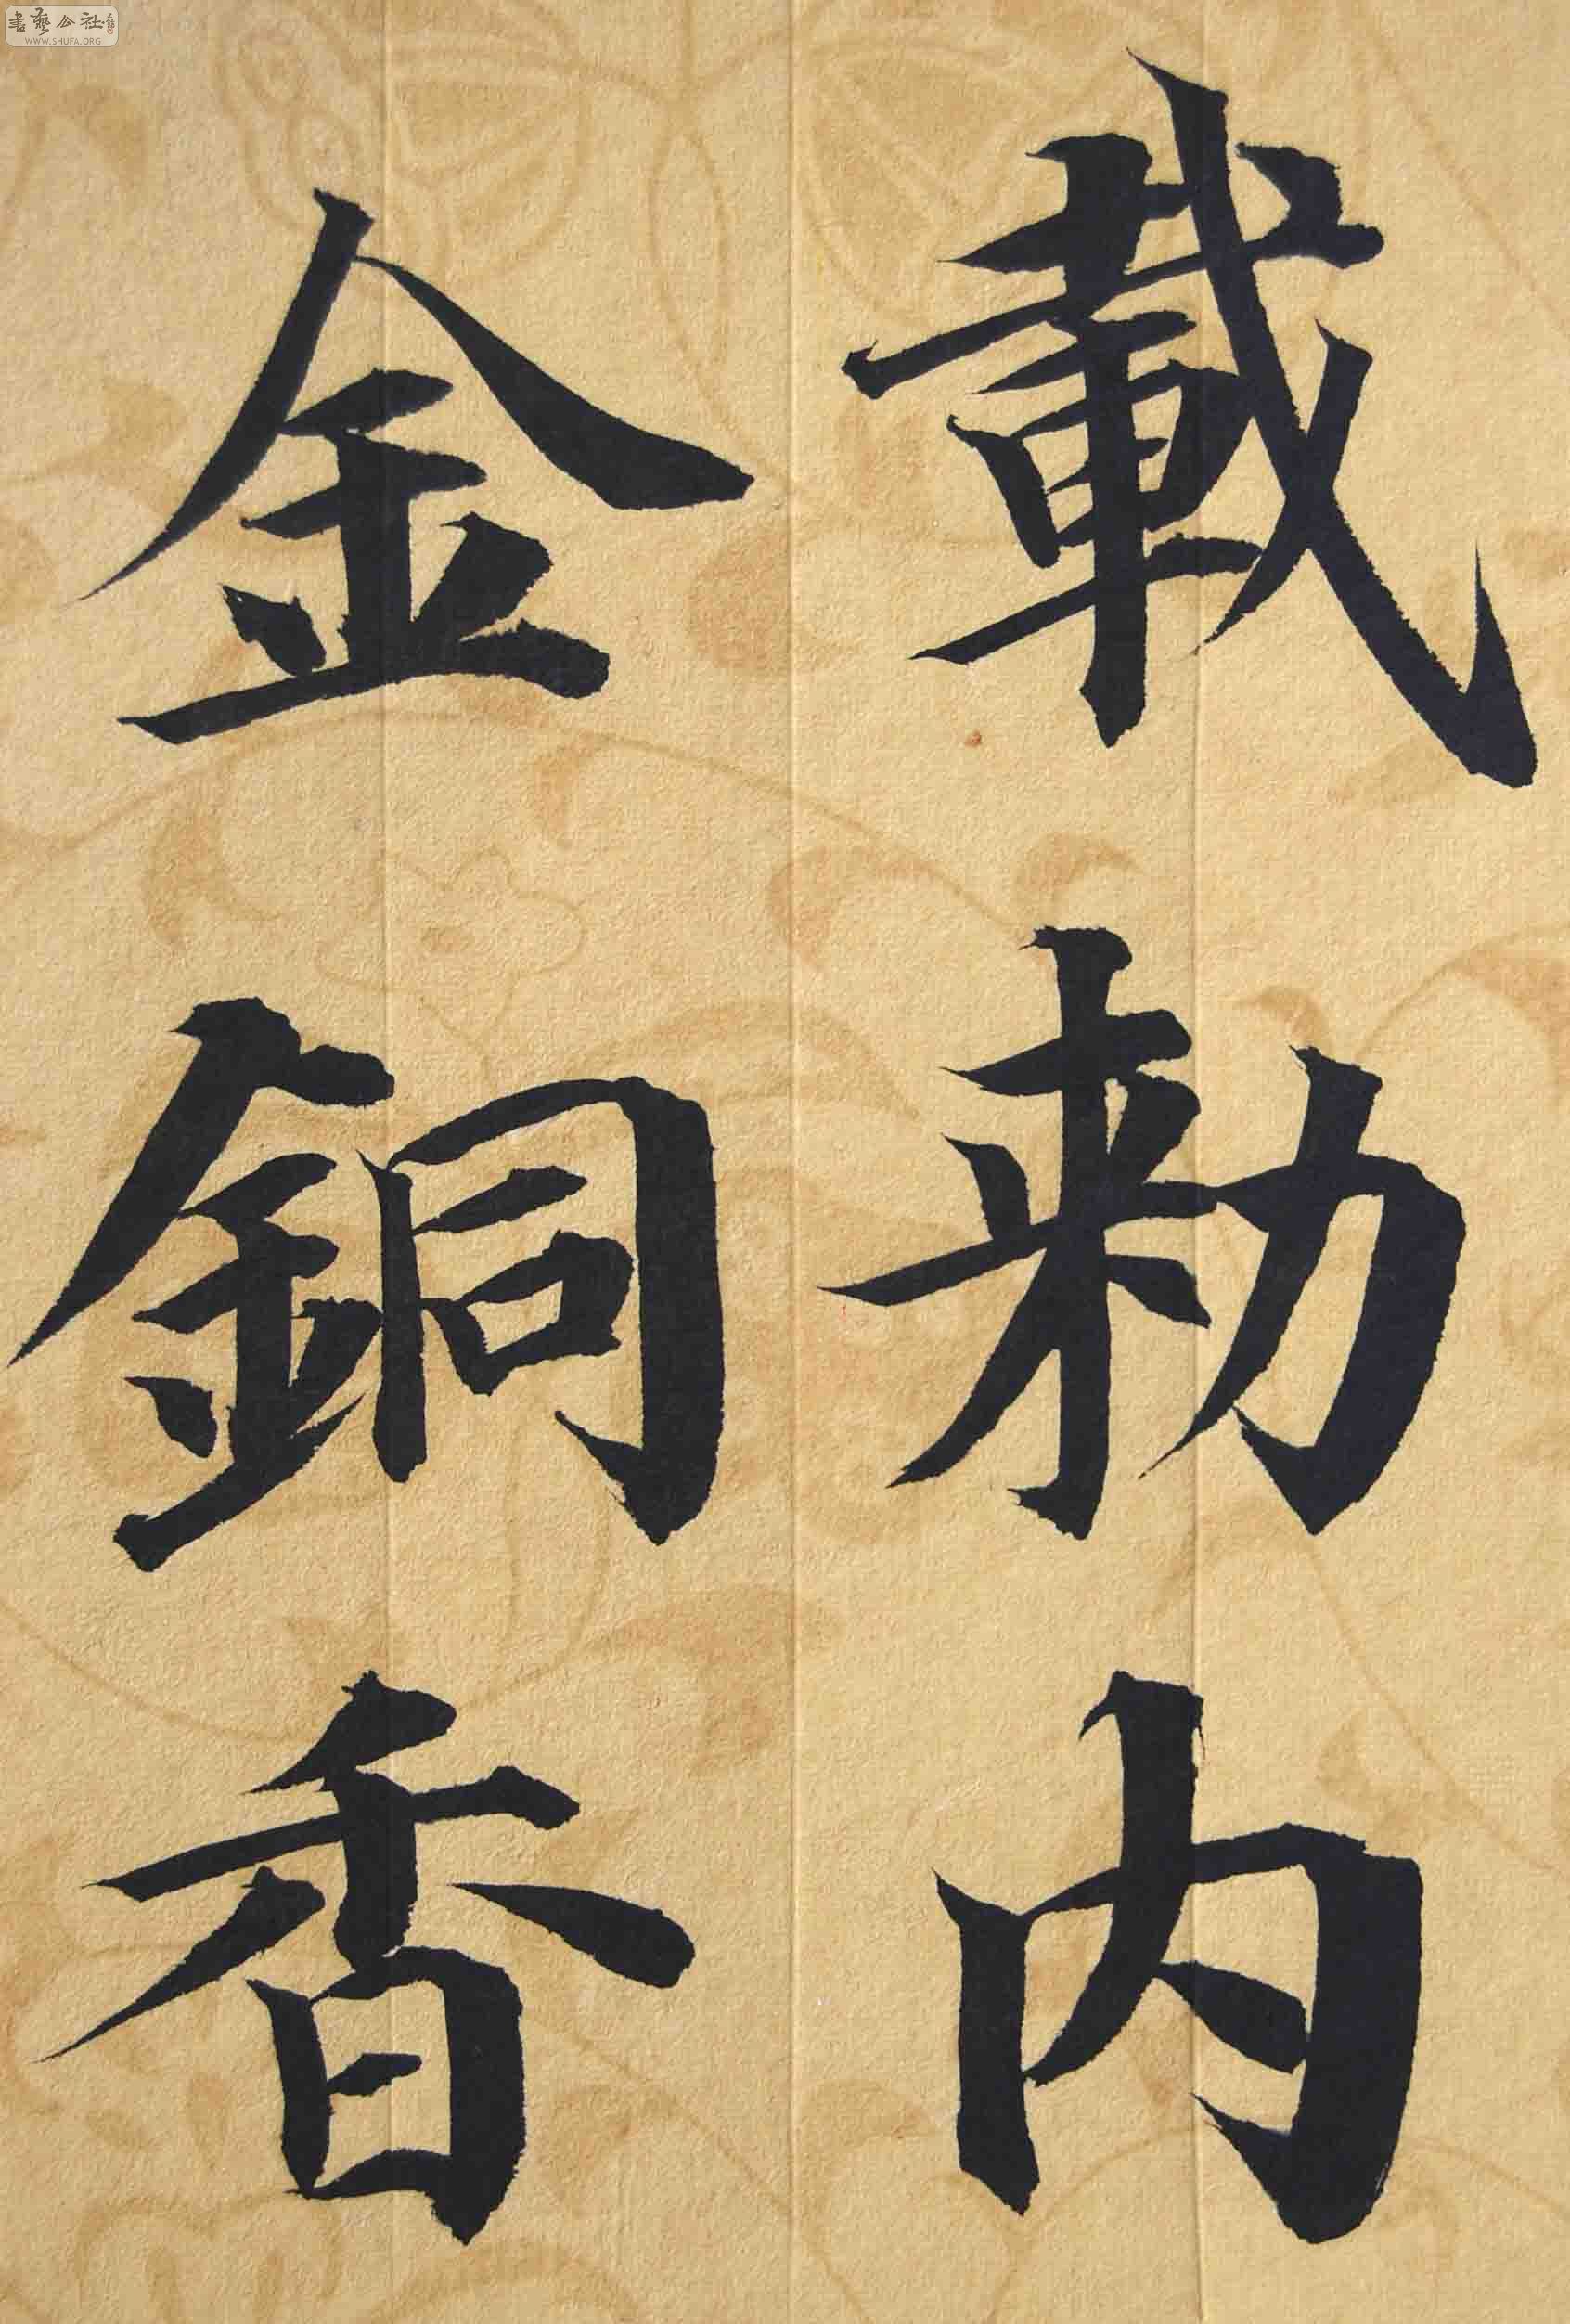 載勅内
金銅香
書藝公社
WWW.SHUFA.ORG